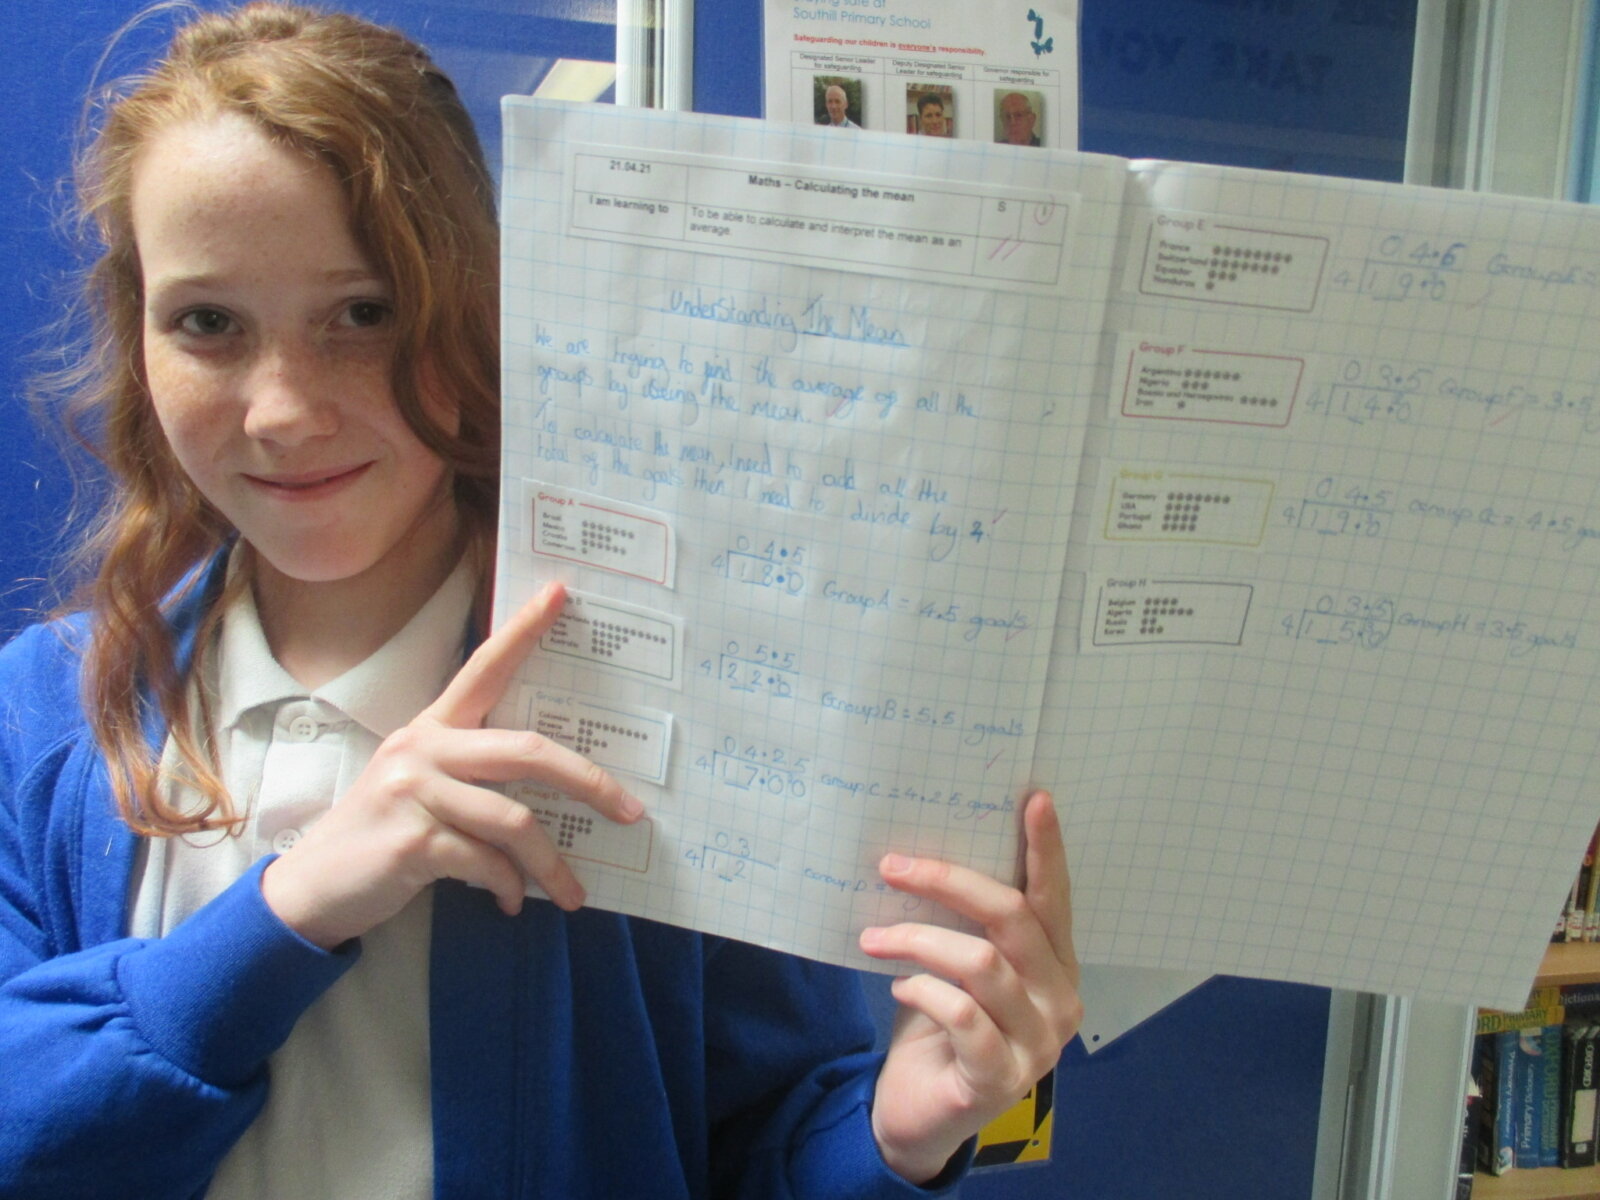 Southill Primary School
Safeguarding our children is everyone's responsibility.
Designated Senior Leader for safeguarding
Deputy Designated Senior Leader for safeguarding
Governor responsible for safeguarding
21.04.21
Maths – Calculating the mean
S
I
I am learning to
To be able to calculate and interpret the mean as an
average.
Understanding The Mean
We are trying to find the average of all the
groups by using the mean.
To calculate the mean, I need to add all the
total of the goals then I need to divide by 4.
Group A
Brazil
Mexico
Croatia
Cameroon
0 4.5
4 1 8.0
Group A = 4.5 goals
B
Spain
Australia
0 5.5
4 2 2.0
Group B = 5.5 goals
Group C
Colombia
Greece
Ivory Coast
0 4.25
4 1 7.00
Group C = 4.25 goals
Group D
Rica
0 3
4 1 2
Group D =
Group E
France
Switzerland
Equador
Honduras
4 1 9.0
Group E =
Group F
Argentina
Nigeria
Bosnia and Herzegovina
Iran
0 3.5
4 1 4.0
Group F = 3.5
Group G
Germany
USA
Portugal
Ghana
0 4.5
4 1 9.0
Group G = 4.5 goa
Group H
Belgium
Algeria
Russia
Korea
0 3.5
4 1 5.0
Group H = 3.5 goals
Primary Dictionary